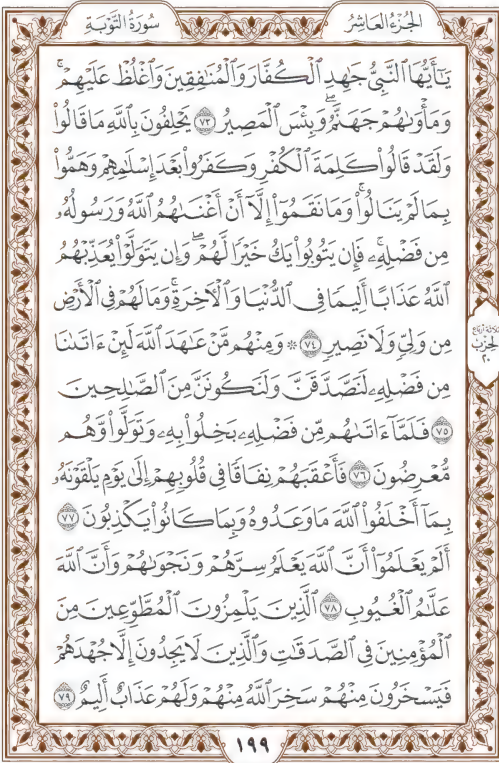 الجُزْءُ العَاشِرُ
سُورَةُ التَّوْبَةِ
يَٰٓأَيُّهَا ٱلنَّبِىُّ جَٰهِدِ ٱلْكُفَّارَ وَٱلْمُنَٰفِقِينَ وَٱغْلُظْ عَلَيْهِمْ ۚ
وَمَأْوَىٰهُمْ جَهَنَّمُ ۖ وَبِئْسَ ٱلْمَصِيرُ ٧٣ يَحْلِفُونَ بِٱللَّهِ مَا قَالُوا۟
وَلَقَدْ قَالُوا۟ كَلِمَةَ ٱلْكُفْرِ وَكَفَرُوا۟ بَعْدَ إِسْلَٰمِهِمْ وَهَمُّوا۟
بِمَا لَمْ يَنَالُوا۟ ۚ وَمَا نَقَمُوٓا۟ إِلَّآ أَنْ أَغْنَىٰهُمُ ٱللَّهُ وَرَسُولُهُۥ
مِن فَضْلِهِۦ ۚ فَإِن يَتُوبُوا۟ يَكُ خَيْرًا لَّهُمْ ۖ وَإِن يَتَوَلَّوْا۟ يُعَذِّبْهُمُ
ٱللَّهُ عَذَابًا أَلِيمًا فِى ٱلدُّنْيَا وَٱلْءَاخِرَةِ ۚ وَمَا لَهُمْ فِى ٱلْأَرْضِ
مِن وَلِىٍّ وَلَا نَصِيرٍ ٧٤ ۞ وَمِنْهُم مَّنْ عَٰهَدَ ٱللَّهَ لَئِنْ ءَاتَىٰنَا
مِن فَضْلِهِۦ لَنَصَّدَّقَنَّ وَلَنَكُونَنَّ مِنَ ٱلصَّٰلِحِينَ
٧٥ فَلَمَّآ ءَاتَىٰهُم مِّن فَضْلِهِۦ بَخِلُوا۟ بِهِۦ وَتَوَلَّوا۟ وَّهُم
مُّعْرِضُونَ ٧٦ فَأَعْقَبَهُمْ نِفَاقًا فِى قُلُوبِهِمْ إِلَىٰ يَوْمِ يَلْقَوْنَهُۥ
بِمَآ أَخْلَفُوا۟ ٱللَّهَ مَا وَعَدُوهُ وَبِمَا كَانُوا۟ يَكْذِبُونَ ٧٧
أَلَمْ يَعْلَمُوٓا۟ أَنَّ ٱللَّهَ يَعْلَمُ سِرَّهُمْ وَنَجْوَىٰهُمْ وَأَنَّ ٱللَّهَ
عَلَّٰمُ ٱلْغُيُوبِ ٧٨ ٱلَّذِينَ يَلْمِزُونَ ٱلْمُطَّوِّعِينَ مِنَ
ٱلْمُؤْمِنِينَ فِى ٱلصَّدَقَٰتِ وَٱلَّذِينَ لَا يَجِدُونَ إِلَّا جُهْدَهُمْ
فَيَسْخَرُونَ مِنْهُمْ ۙ سَخِرَ ٱللَّهُ مِنْهُمْ وَلَهُمْ عَذَابٌ أَلِيمٌ ٧٩
ثلاثة أرباع
الحزب
٢٠
١٩٩